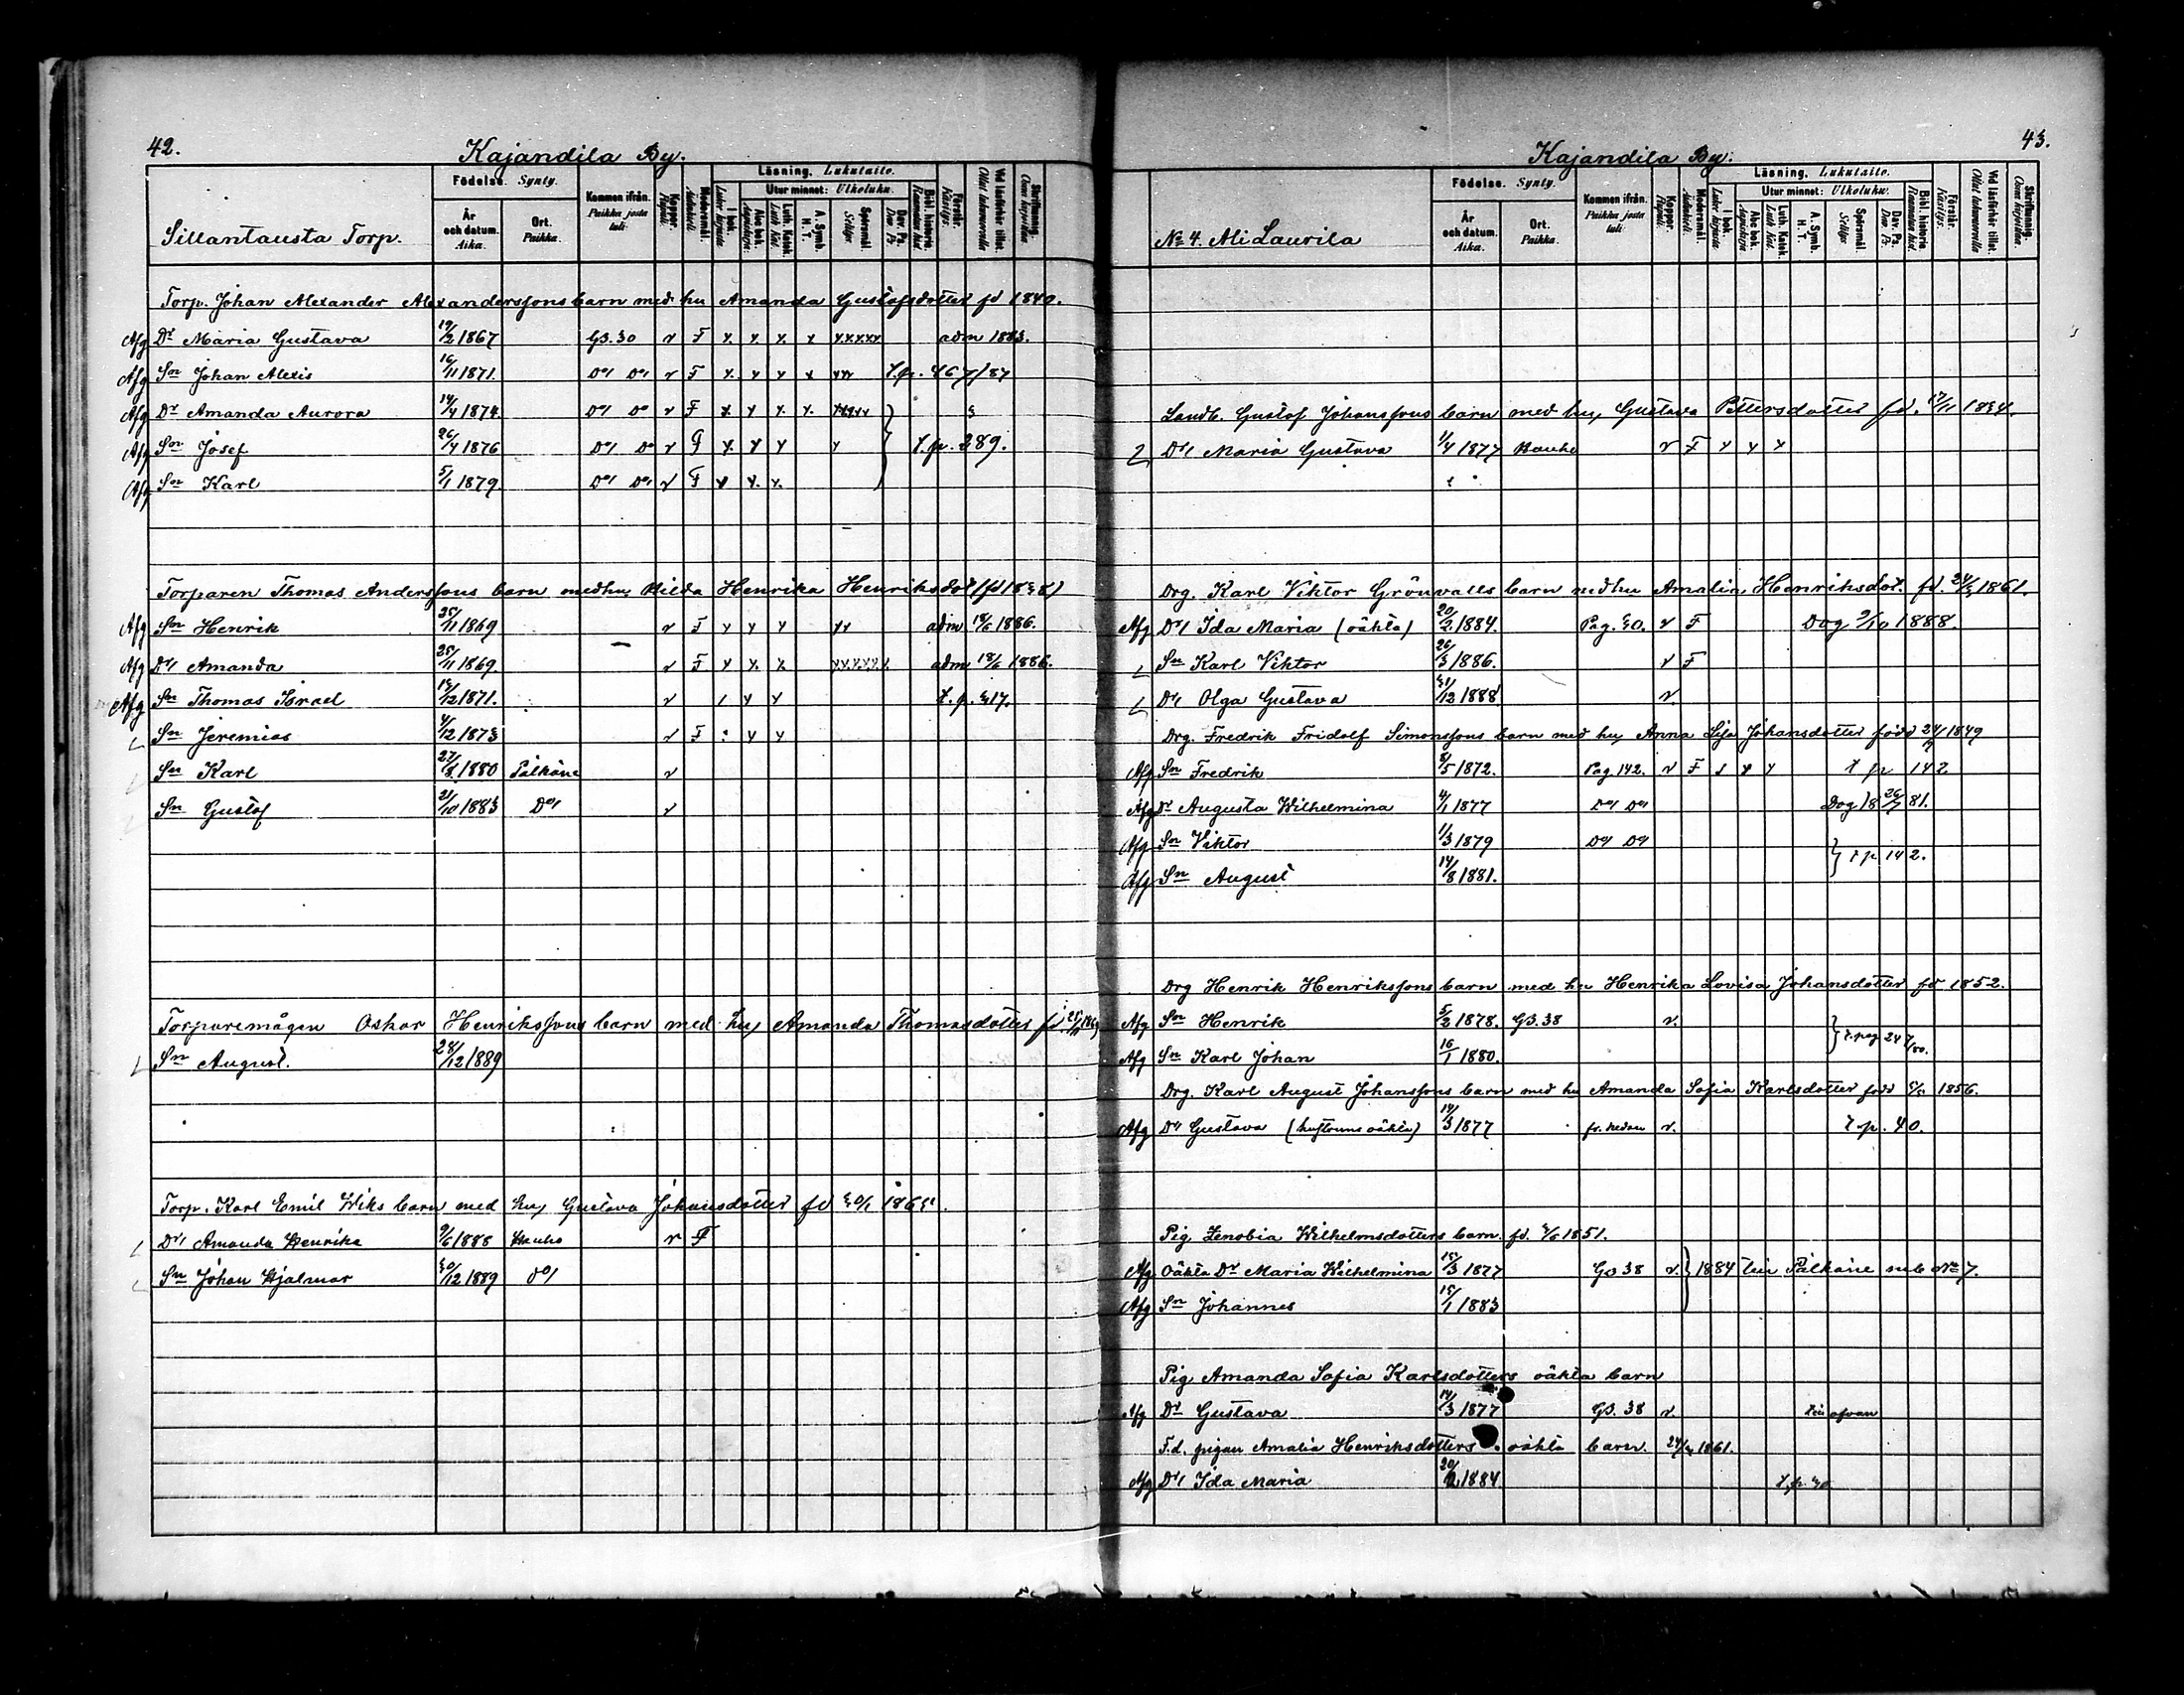 42.
Kajandila By.
Sillantausta Torp.
Födelse. Synty.
År och datum. Aika.
Ort. Paikka.
Kommen ifrån. Paikka josta tuli.
Koppor. Rupuli.
Modersmål. Äidinkieli.
Läsning. Lukutaito.
I bok. Lukee kirjasta
Utur minnet: Ulkoluku.
Abc bok. Aapiskirja.
Luth. Katek. Luth. Kat.
A. Symb. H. T.
Spörsmål. Selitys
Dav. Ps. Dav. Ps.
Bibl. historia. Raamatun hist.
Förstår. Käsitys.
Vid läsförhör tillst. Ollut lukuvuorolla
Skriftmung. Osaa kirjoittaa
Torp. Johan Alexander Alexanderssons barn med hu Amanda Gustafsdotter fd 1840.
Afg Dr Maria Gustava 19/2 1867 GB. 30 v F x x x x xxxxx adm 1883.
Afg Sn Johan Alexis 16/11 1871. Do Do v F x x x x xxx t.p. 467/87
Afg Dr Amanda Aurora 14/4 1874. Do Do v F x x x x
Afg Sn Josef 26/4 1876 Do Do v F x x x x t.p. 289.
Afg Sn Karl 5/1 1879. Do Do v F x x x
Torparen Thomas Anderssons barn med hu Hilda Henrika Henriksdot (fd 1838)
Afg Sn Henrik 25/11 1869 v F x x x xx adm 18/6 1886.
Afg Dr Amanda 25/11 1869. v F x x x xxxxxx adm 18/6 1886.
Afg Sn Thomas Israel 13/12 1871. v x x t.p. 317.
Sn Jeremias 4/12 1873 v F x x
Sn Karl 1880 Pälkäne v
Sn Gustaf 21/10 1883 Do v
Torparemågen Oskar Henrikssons barn med hu Amanda Thomasdotter fd. 25/11 1869
Sn August. 28/12 1889
Torp. Karl Emil Wiks barn med hu Gustava Johansdotter fd
Dr Amanda Henrika 9/6 1888 Hauho v F
Sn Johan Hjalmar 30/12 1889 Do
43.
Kajandila By.
No 4. Ali Laurila
Födelse. Synty.
År och datum. Aika.
Ort. Paikka.
Kommen ifrån. Paikka josta tuli.
Koppor. Rupuli.
Modersmål. Äidinkieli.
Läsning. Lukutaito.
I bok. Lukee kirjasta
Utur minnet: Ulkoluku.
Abc bok. Aapiskirja.
Luth. Katek. Luth. Kat.
A. Symb. H. T.
Spörsmål. Selitys
Dav. Ps. Dav. Ps.
Bibl. historia. Raamatun hist.
Förstår. Käsitys.
Vid läsförhör tillst. Ollut lukuvuorolla
Skriftmung. Osaa kirjoittaa
Landb. Gustaf Johanssons barn med hu Gustava Pettersdotter fd. 17/11 1834.
Dr Maria Gustava 1/4 1877 Hauho v F x x x
Drg. Karl Viktor Grönvalls barn med hu Amalia Henriksdot. fd. 24/3 1861.
Afg Dr Ida Maria (oäkta) 20/2 1884. Pag. 30. v F Dog 9/10 1888.
Sn Karl Viktor 26/3 1886. v F
Dr Olga Gustava 31/12 1888. v.
Drg. Fredrik Fridolf Simonssons barn med hu Anna Lisa Johansdotter född 1849
Afg Sn Fredrik 8/5 1872. Pag. 142. v F x x x t p 142
Afg Dr Augusta Wilhelmina 4/1 1877 Do Do Dog 18 26/7 81.
Afg Sn Viktor 1/3 1879 Do Do t p 142.
Afg Sn August 14/8 1881.
Drg Henrik Henrikssons barn med hu Henrika Lovisa Johansdotter fd 1852.
Afg Sn Henrik 5/2 1878. GB. 38 v.
Afg Sn Karl Johan 16/1 1880.
Drg. Karl August Johanssons barn med hu Amanda Sofia Karlsdotter född 1856.
Afg Dr Gustava (hustruns oäkta) 14/3 1877 fr. nedan v. t.p. 40.
Pig Zenobia Wilhelmsdotters barn. fd. 1851.
Afg Oäkta Dr Maria Wilhelmina 15/3 1877 GB 38 v. 1884 till Pälkäne sub No 7.
Afg Sn Johannes 15/1 1883
Pig Amanda Sofia Karlsdotters oäkta barn
Afg Dr Gustava 14/3 1877 GB. 38 v. till ofvan
F.d. pigan Amalia Henriksdotters oäkta barn 24/3 1861.
Afg Dr Ida Maria 20/2 1884. t.p. 30